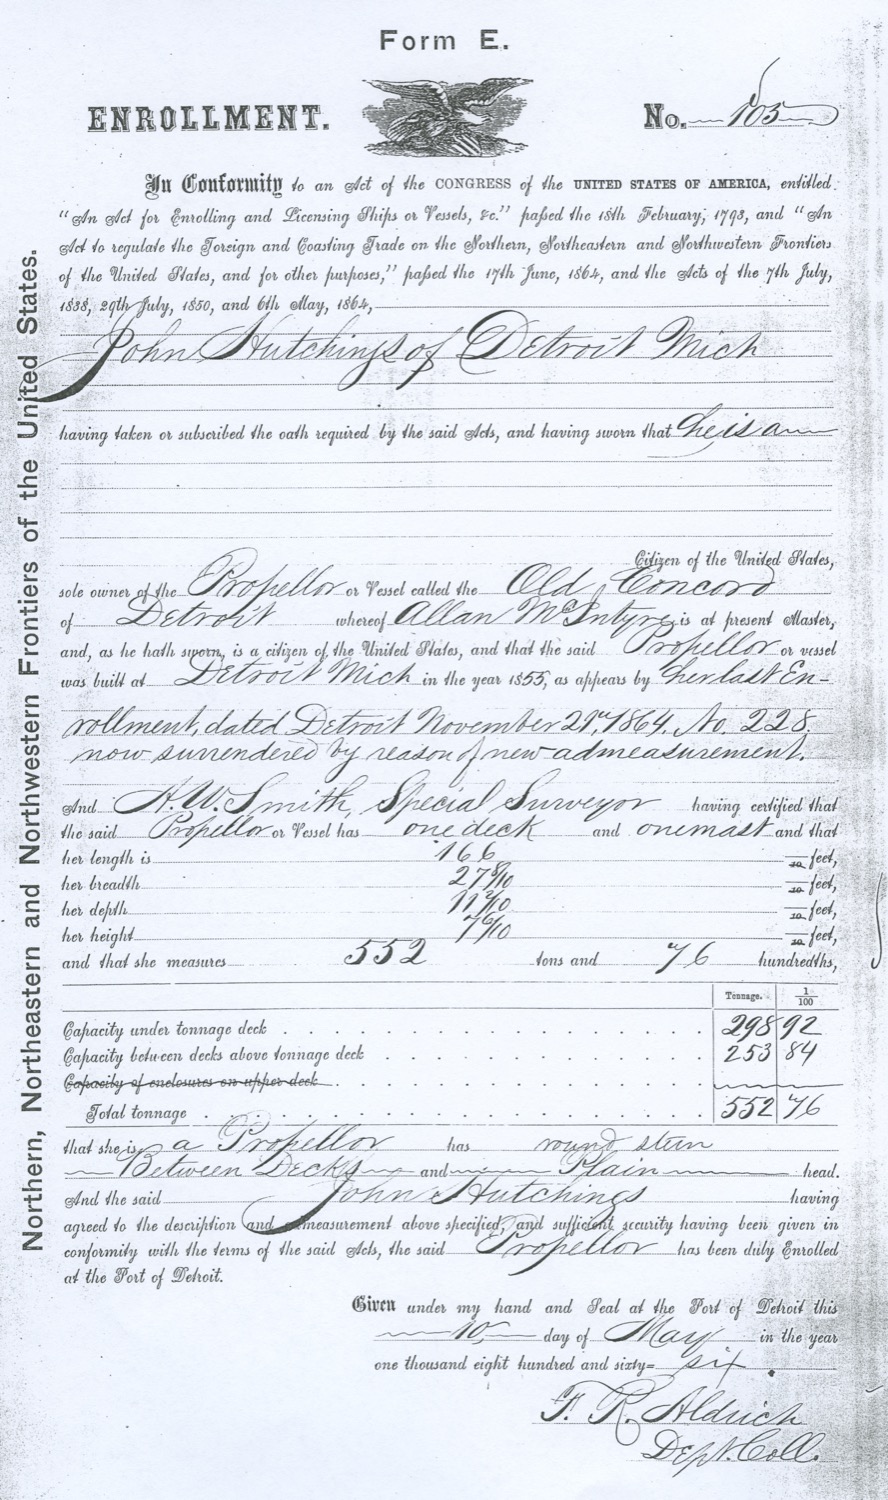 Form E.
ENROLLMENT.
No. 105
In Conformity to an Act of the CONGRESS of the UNITED STATES OF AMERICA, entitled
"An Act for Enrolling and Licensing Ships or Vessels, &c." passed the 18th February, 1793, and "An
Act to regulate the Foreign and Coasting Trade on the Northern, Northeastern and Northwestern Frontiers
of the United States, and for other purposes," passed the 17th June, 1864, and the Acts of the 7th July,
1838, 29th July, 1850, and 6th May, 1864,
John Hutchings of Detroit Mich
having taken or subscribed the oath required by the said Acts, and having sworn that he is a
Citizen of the United States,
sole owner of the Propellor or Vessel called the Old Concord
of Detroit whereof Allan McIntyre is at present Master,
and, as he hath sworn, is a citizen of the United States, and that the said Propellor or vessel
was built at Detroit Mich in the year 1855, as appears by her last En-
rollment, dated Detroit November 21st, 1864. No. 228
now surrendered by reason of new admeasurement.
And H. W. Smith, Special Surveyor having certified that
the said Propellor or Vessel has one deck and one mast and that
her length is 166 10 feet,
her breadth 27 8/10 10 feet,
her depth 11 2/10 10 feet,
her height 7 6/10 10 feet,
and that she measures 552 tons and 76 hundredths,
Tonnage. 1/100
Capacity under tonnage deck 298 92
Capacity between decks above tonnage deck 253 84
Capacity of enclosures on upper deck
Total tonnage 552 76
that she is a Propellor has round stern
Between Decks and Plain head.
And the said John Hutchings having
agreed to the description and admeasurement above specified, and sufficient security having been given in
conformity with the terms of the said Acts, the said Propellor has been duly Enrolled
at the Port of Detroit.
Given under my hand and Seal at the Port of Detroit this
10 day of May in the year
one thousand eight hundred and sixty= six.
F. R. Aldrich
Dept. Coll.
Northern, Northeastern and Northwestern Frontiers of the United States.